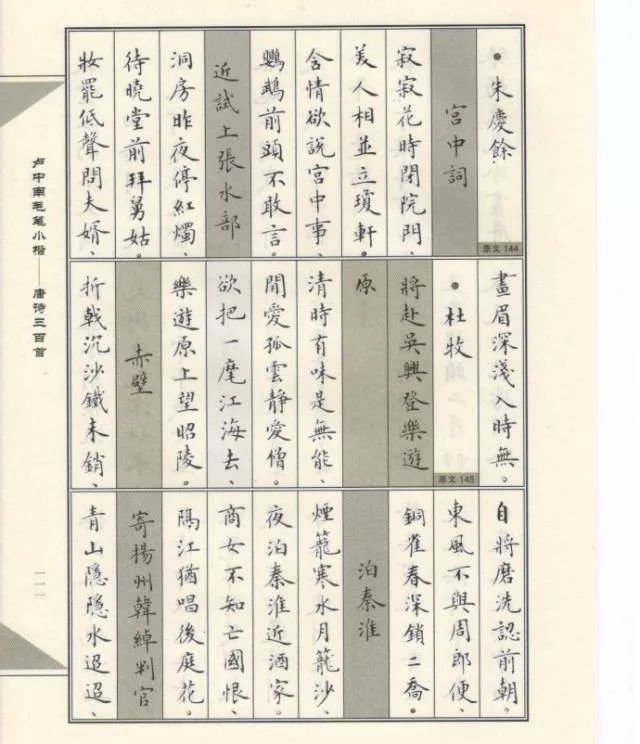 ●朱慶餘
宮中詞
原文 144
寂寂花時閉院門、
美人相並立瓊軒。
含情欲說宮中事、
鸚鵡前頭不敢言。
近試上張水部
洞房昨夜停紅燭、
待曉堂前拜舅姑。
妝罷低聲問夫婿、
畫眉深淺入時無。
●杜牧
原文 145
將赴吳興登樂遊
原
清時有味是無能、
閒愛孤雲靜愛僧。
欲把一麾江海去、
樂遊原上望昭陵。
赤壁
折戟沉沙鐵未銷、
自將磨洗認前朝。
東風不與周郎便、
銅雀春深鎖二喬。
泊秦淮
煙籠寒水月籠沙、
夜泊秦淮近酒家。
商女不知亡國恨、
隔江猶唱後庭花。
寄揚州韓綽判官
青山隱隱水迢迢、
卢中南毛笔小楷——唐诗三百首
一一一